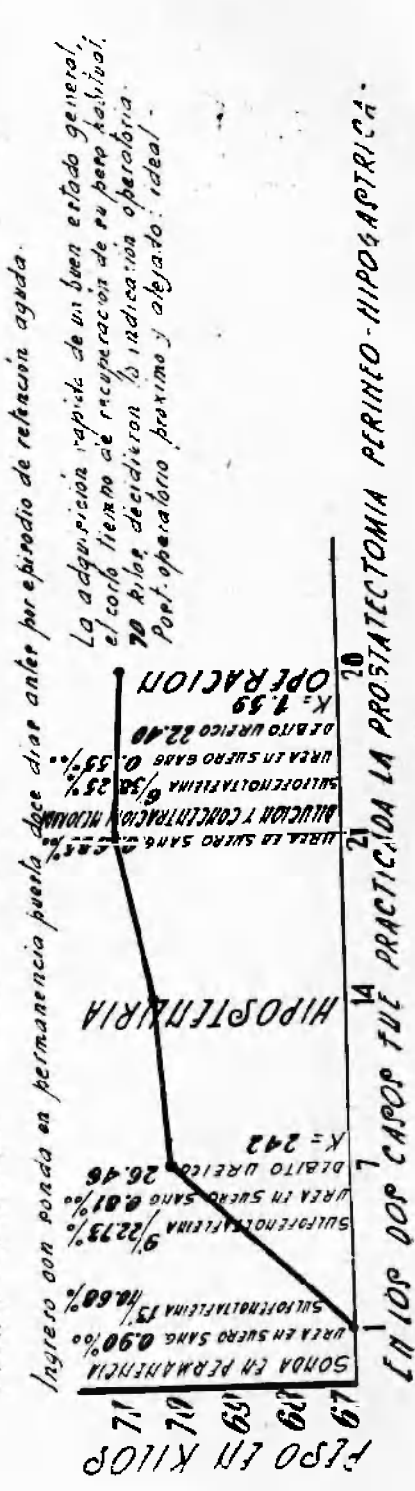 Ingreso con sonda en permanencia puesta doce dias antes por episodio de retención aguda.
La adquisición rapida de un buen estado general,
el corto tiempo de recuperación de su peso habitual,
70 kilos, decidieron la indicación operatoria.
Post-operatorio próximo y alejado: ideal.
PESO EN KILOS
71
70
69
68
67
SONDA EN PERMANENCIA
UREA EN SUERO SANG. 0.90‰
SULFOFENOLTALEINA 10.68%
SULFOFENOLFTALEINA 9/22.73%
UREA EN SUERO SANG 0.81‰
DEBITO UREICO 26.46
K = 242
HIPOSTENURIA
UREA EN SUERO SANG
DILUCION Y CONCENTRACION MEJORADA
SULFOFENOLFTALEINA 6/38.25%
UREA EN SUERO SANG 0.55‰
DEBITO UREICO 22.40
K = 1.59
OPERACION
1 7 14 21 28
EN LOS DOS CASOS FUE PRACTICADA LA PROSTATECTOMIA PERINEO-HIPOGASTRICA.